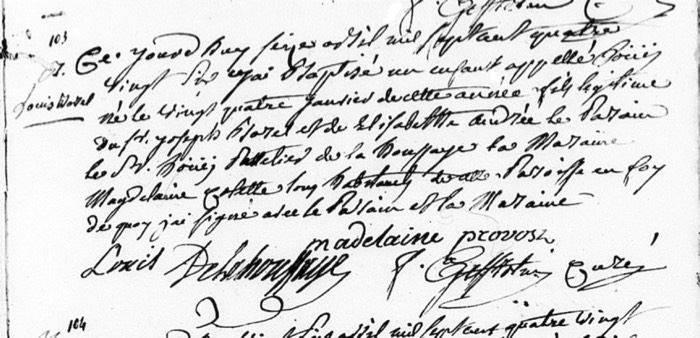 103
Ce jourd huy seize avril mil sept cent quatre
Louis Borel
vingt six j'ai Baptisé un enfant appellé Loüis
né le vingt quatre janvier de cette année fils legitime
du Sr. joseph Borel et de Elisabette andrée le Parain
le Sr. Loüis Pelletier de la houssaye la Maraine
Magdelaine tous habitants de cette Paroisse en foy
de quoy j'ai signé avec le Parain et la Maraine
madelaine provost
Louis Delahoussaye f. curé
104
avril mil sept cent quatre vingt